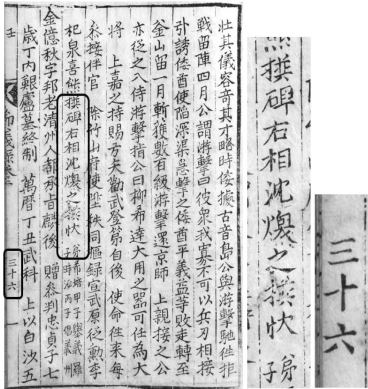 壯其儀容奇其才略時倭擾古音島公與游擊馳往拒
戰留陣四月公謂游擊曰彼衆我寡不可以兵刃相接
引誘倭酋使陷深渠急擊之倭酋平義益等敗走轉至
釜山留一月斬獲數百級游擊還京師 上親接之公
亦從之入侍游擊指公曰柳希達大用之器可任為大
將 上嘉之特賜方夫勸武登第自後 使命往來每
接伴官 除竹山府使陞秩同樞錄宣武原從勳李
杞泉喜撰碑右相沈煥之撰狀 孫
金億秋字邦老清州人郡承吉麟後 贈參判忠貞子七
歲丁內艱廬墓終制 萬曆丁丑武科 上以白沙五
壬
三十六
撰碑右相沈煥之撰狀 孫子
三十六